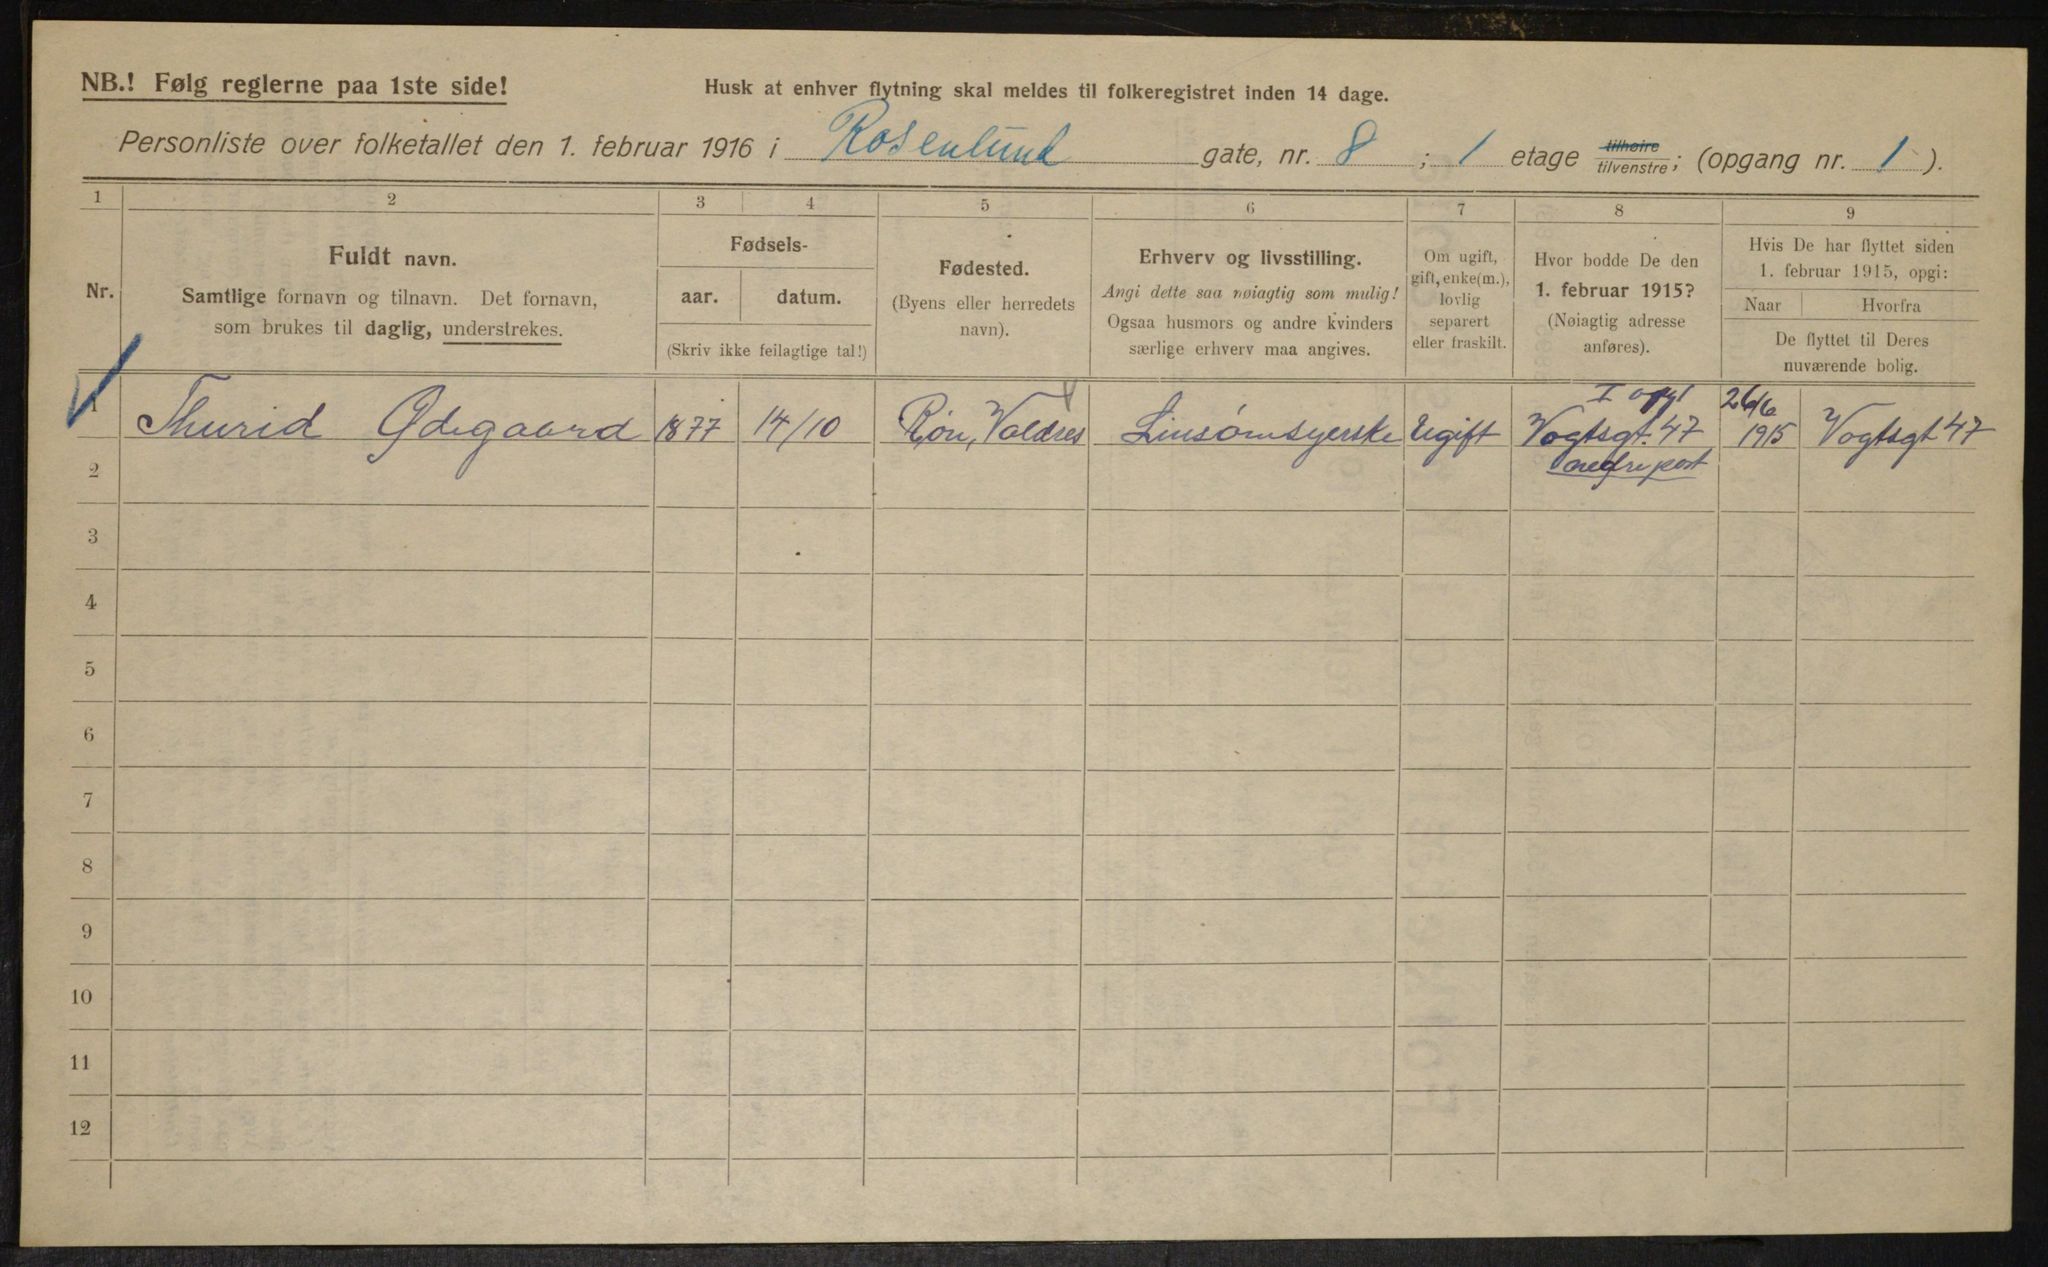 NB.! Følg reglerne paa 1ste side!
Husk at enhver flytning skal meldes til folkeregistret inden 14 dage.
Personliste over folketallet den 1. februar 1916 i Rosenlund gate, nr. 8 ; 1 etage tilhøire/tilvenstre; (opgang nr. 1 ).
1 2 3 4 5 6 7 8 9
Nr.
Fuldt navn.
Samtlige fornavn og tilnavn. Det fornavn,
som brukes til daglig, understrekes.
Fødsels-
aar. datum.
(Skriv ikke feilagtige tal!)
Fødested.
(Byens eller herredets
navn).
Erhverv og livsstilling.
Angi dette saa nøiagtig som mulig!
Ogsaa husmors og andre kvinders
særlige erhverv maa angives.
Om ugift,
gift, enke(m.),
lovlig
separert
eller fraskilt.
Hvor bodde De den
1. februar 1915?
(Nøiagtig adresse
anføres).
Hvis De har flyttet siden
1. februar 1915, opgi:
Naar Hvorfra
De flyttet til Deres
nuværende bolig.
1 Thurid Ødegaard 1877 14/10 Røn, Valdres Linsømsyerske Ugift Vogtsgt. 47 1915 Vogtsgt 47
2
3
4
5
6
7
8
9
10
11
12